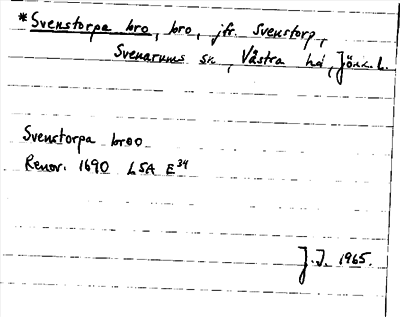 *Svenstorpa bro, bro, jfr. Svenstorp,
Svenarums sn, Västra hd, Jönk. L.
Svenstorpa broo
Renov. 1690 LSA E34
J.J. 1965.